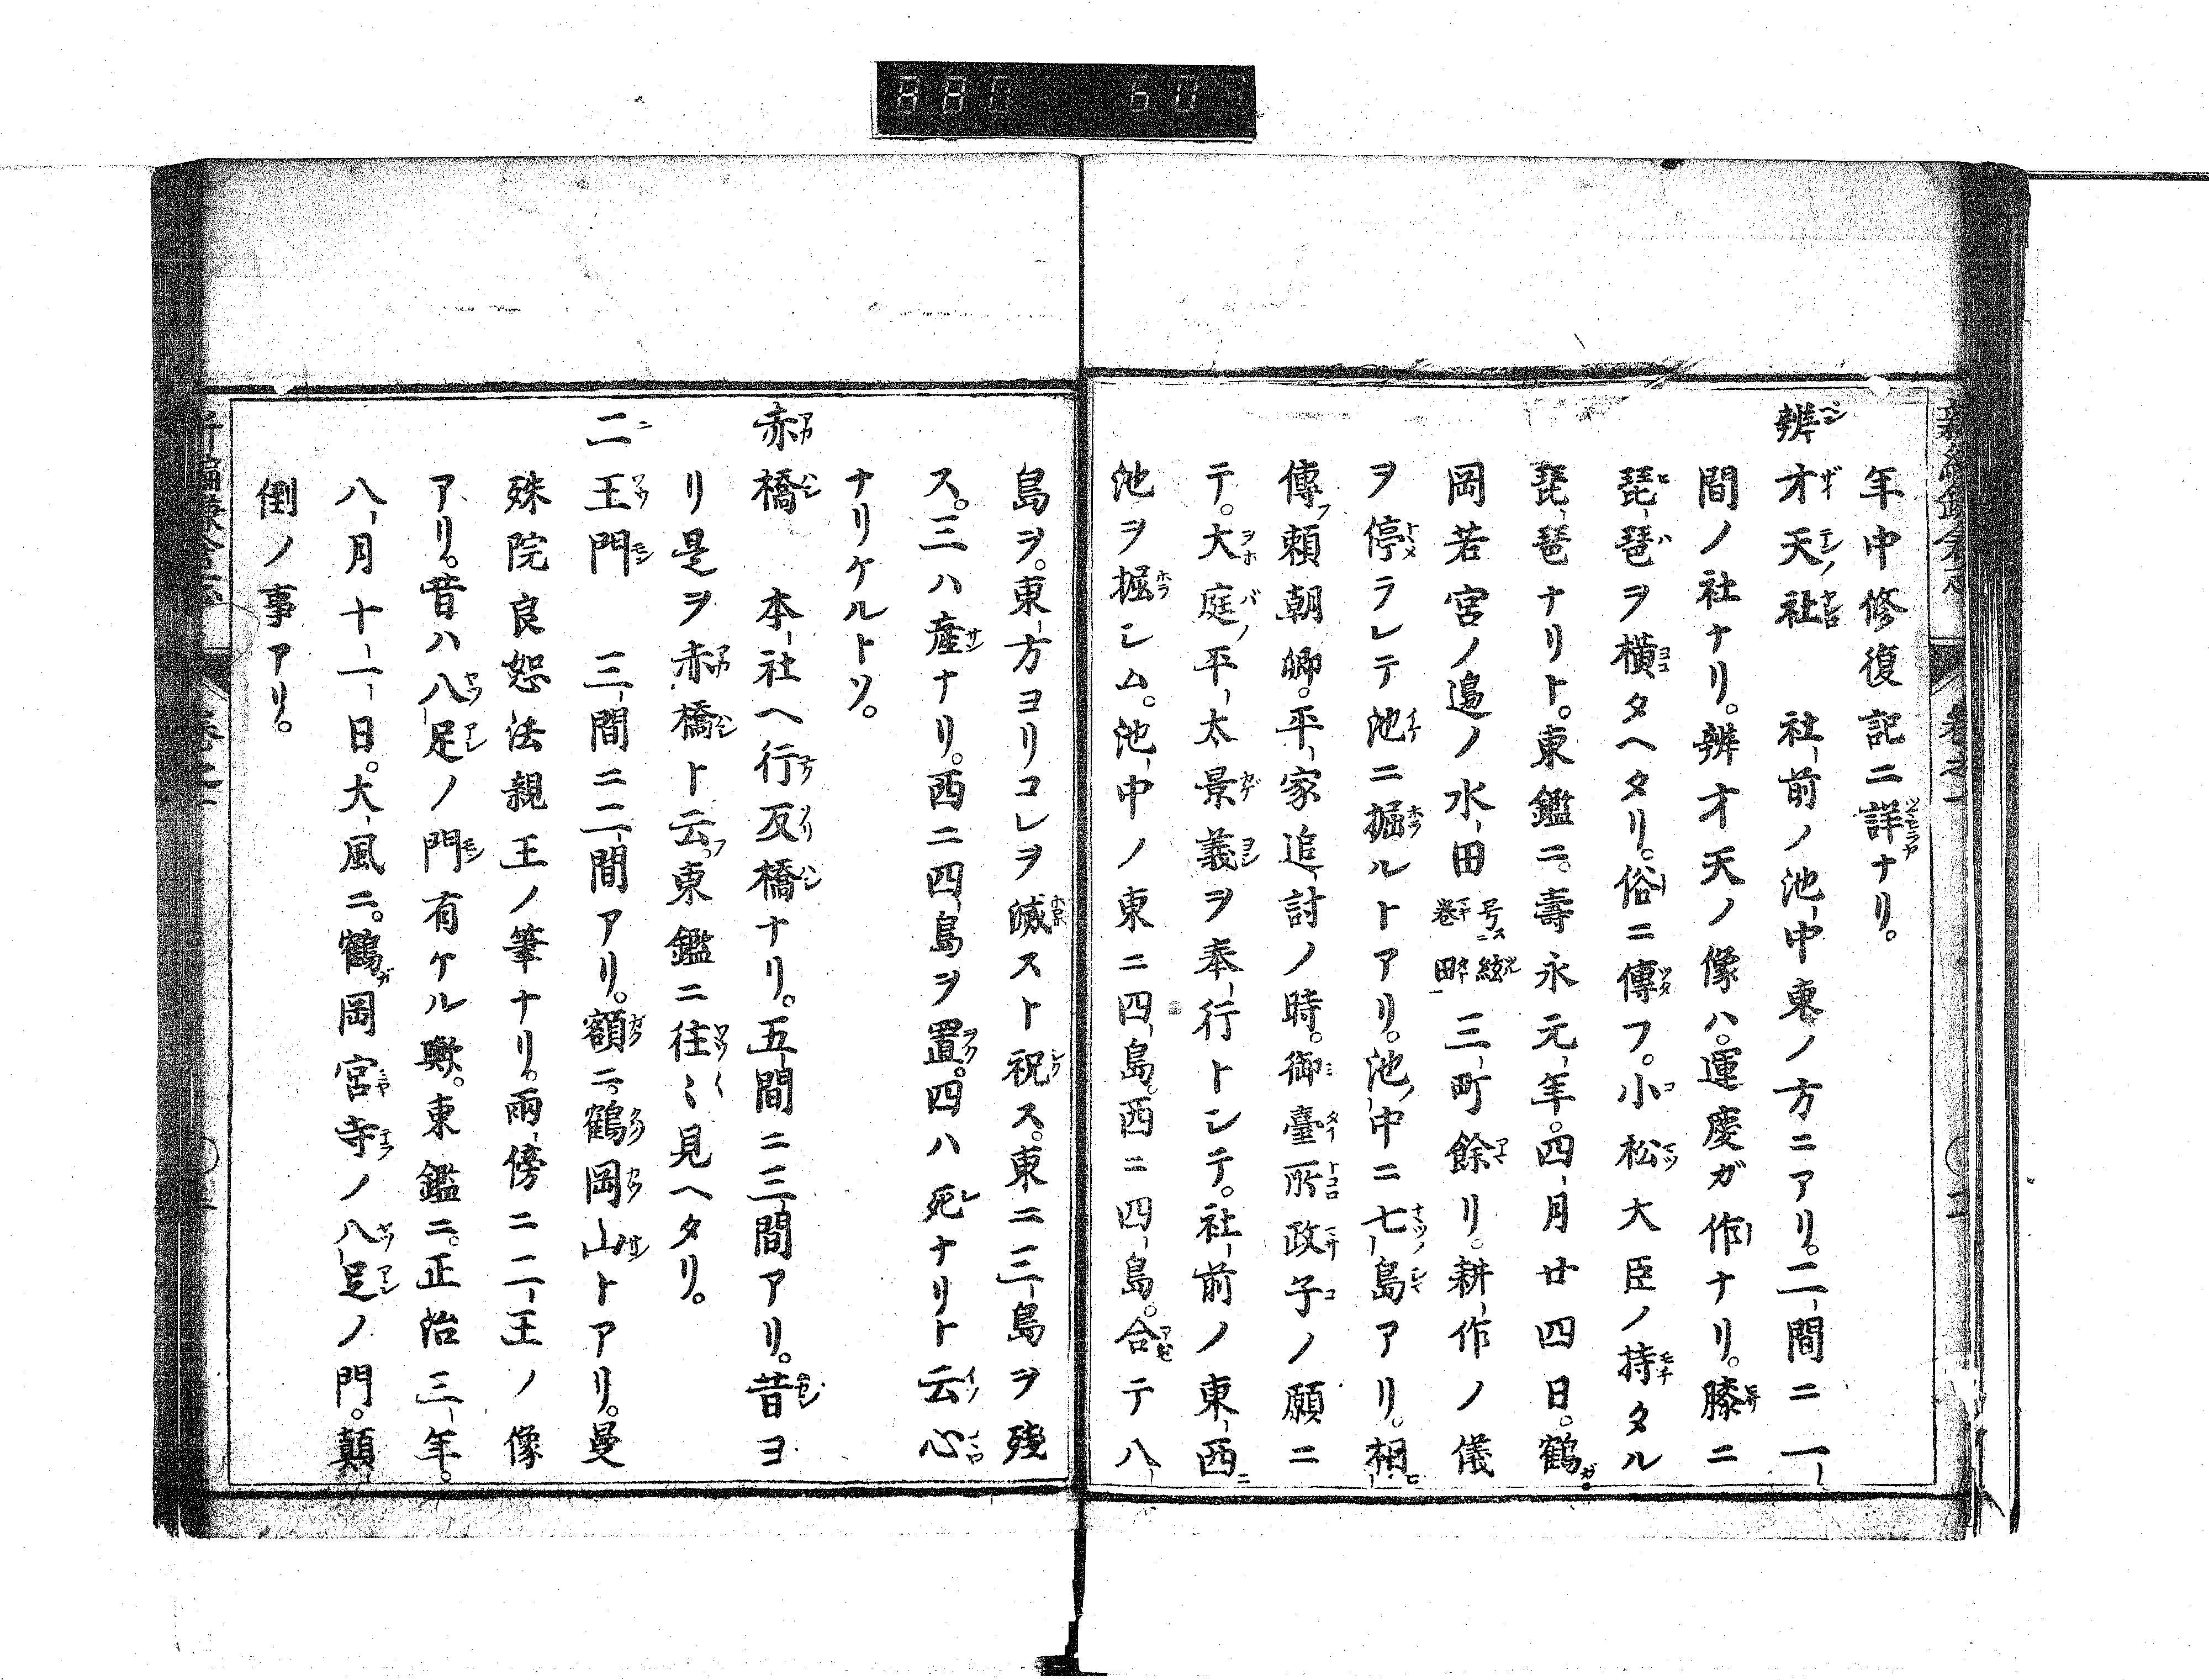 年中修復記ニ詳ナリ。
辨才天社　社前ノ池中東ノ方ニアリ。二間ニ一
間ノ社ナリ。辨才天ノ像ハ。運慶ガ作ナリ。膝ニ
琵琶ヲ横タヘタリ。俗ニ傳フ。小松大臣ノ持タル
琵琶ナリト。東鑑ニ。壽永元年。四月廿四日。鶴
岡若宮ノ邉ノ水田号絃巻田三町餘リ。耕作ノ儀
ヲ停ラレテ池ニ掘ルトアリ。池中ニ七島アリ。相
傳フ頼朝卿。平家追討ノ時。御臺所政子ノ願ニ
テ。大庭平太景義ヲ奉行トシテ。社前ノ東西ニ
池ヲ掘シム。池中ノ東ニ四島。西ニ四島。合テ八
島ヲ。東方ヨリコレヲ滅スト祝ス。東ニ三島ヲ残
ス。三ハ産ナリ。西ニ四島ヲ置。四ハ死ナリト云心
ナリケルトソ。
赤橋　本社ヘ行反橋ナリ。五間ニ三間アリ。昔ヨ
リ是ヲ赤橋ト云フ。東鑑ニ往〻見ヘタリ。
二王門　三間ニ二間アリ。額ニ。鶴岡山トアリ。曼
殊院良恕法親王ノ筆ナリ。兩傍ニ二王ノ像
アリ。昔ハ八足ノ門有ケル歟。東鑑ニ。正治三年。
八月十一日。大風ニ。鶴岡宮寺ノ八足ノ門。顛
倒ノ事アリ。